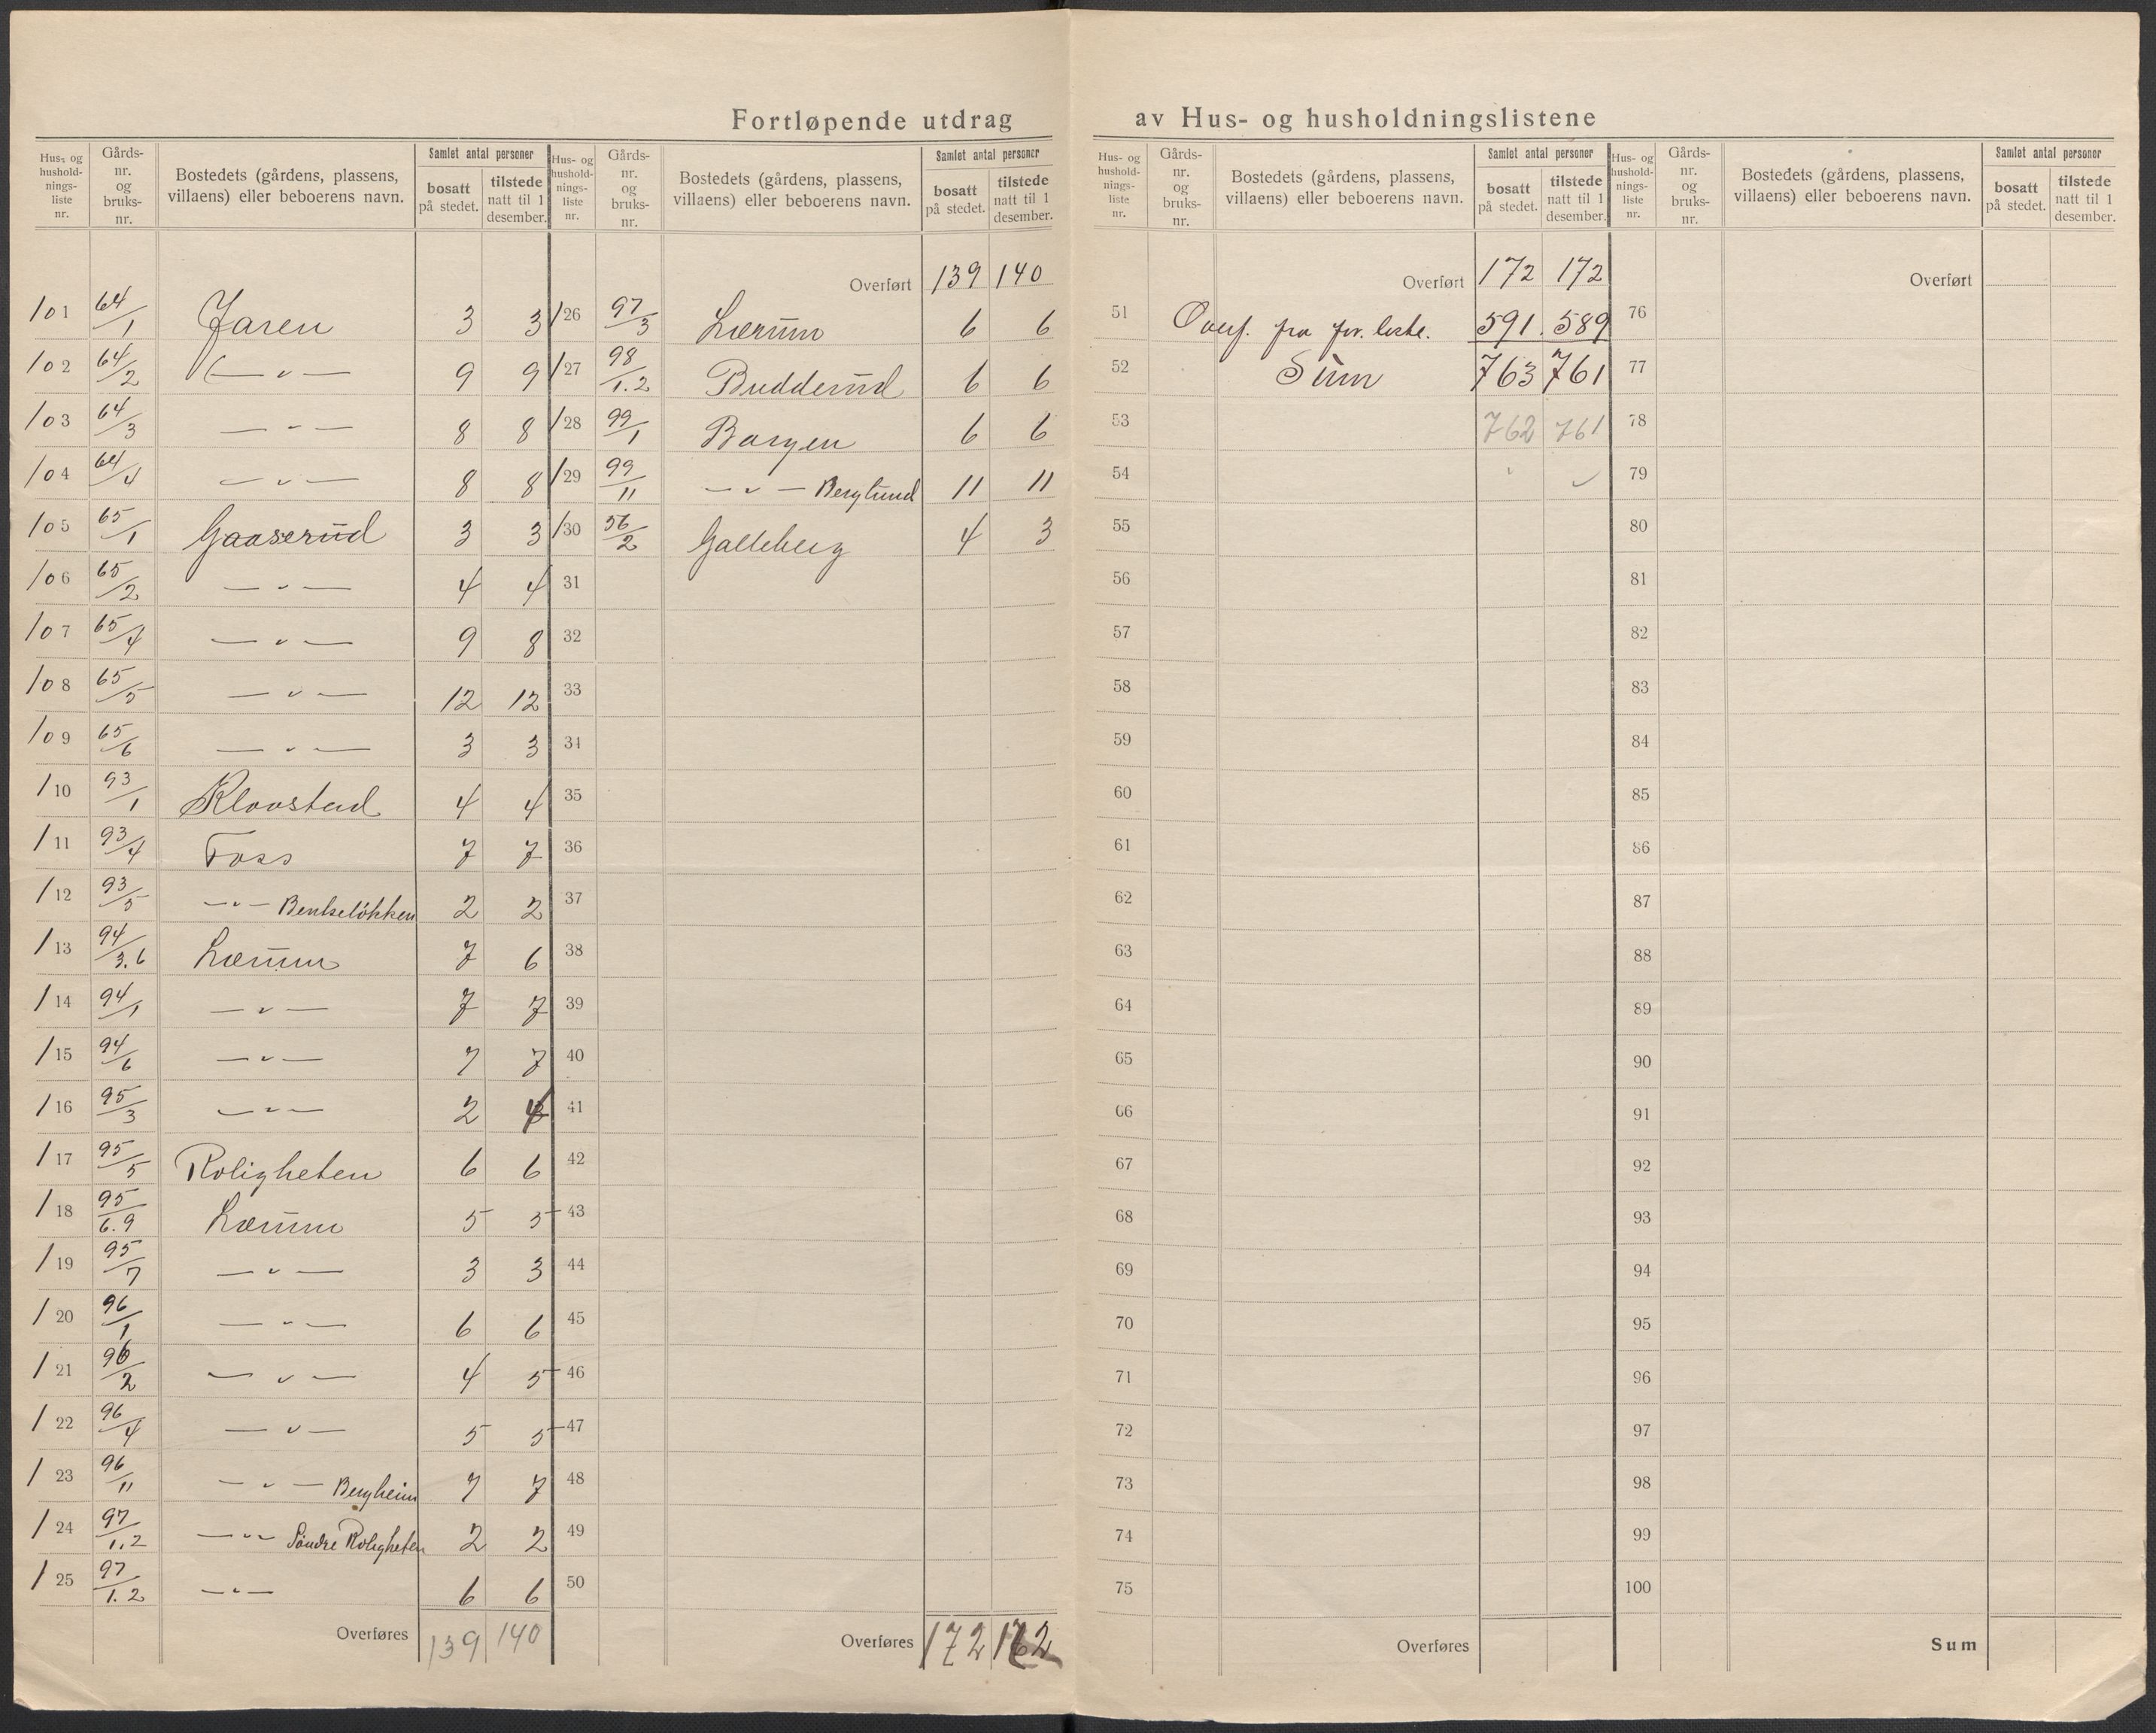 Fortløpende utdrag av Hus- og husholdningslistene
Hus- og hushold-nings-liste nr. | Gårds-nr. og bruks-nr. | Bostedets (gårdens, plassens, villaens) eller beboerens navn. | Samlet antal personer | bosatt på stedet. | tilstede natt til 1 desember.
101 64/1 Jaren 3 3
102 64/2 — " — 9 9
103 64/3 — " — 8 8
104 64/4 — " — 8 8
105 65/1 Gaaserud 3 3
106 65/2 — " — 4 4
107 65/4 — " — 9 8
108 65/5 — " — 12 12
109 65/6 — " — 3 3
110 93/1 Klovstad 4 4
111 93/4 Foss 7 7
112 93/5 — " — Benkeløkken 2 2
113 94/3.6 Lærum 7 6
114 94/1 — " — 7 7
115 94/6 — " — 7 7
116 95/3 — " — 2
117 95/5 Roligheten 6 6
118 95/6.9 Lærum 5 5
119 95/7 — " — 3 3
120 96/1 — " — 6 6
121 96/2 — " — 4 5
122 96/4 — " — 5 5
123 96/11 — " — Bergheim 7 7
124 97/1.2 — " — Søndre Roligheten 2 2
125 97/1.2 — " — 6 6
Overføres 139 140
Hus- og hushold-nings-liste nr. | Gårds-nr. og bruks-nr. | Bostedets (gårdens, plassens, villaens) eller beboerens navn. | Samlet antal personer | bosatt på stedet. | tilstede natt til 1 desember.
Overført 139 140
126 97/3 Lærum 6 6
127 98/1.2 Budderud 6 6
128 99/1 Bargen 6 6
129 99/11 — " — Berglund 11 11
130 56/2 Galleberg 4 3
31
32
33
34
35
36
37
38
39
40
41
42
43
44
45
46
47
48
49
50
Overføres 172 172
Hus- og hushold-nings-liste nr. | Gårds-nr. og bruks-nr. | Bostedets (gårdens, plassens, villaens) eller beboerens navn. | Samlet antal personer | bosatt på stedet. | tilstede natt til 1 desember.
Overført 172 172
51 Overf. fra for. liste. 591 589
52 Sum 763 761
53 762 761
54
55
56
57
58
59
60
61
62
63
64
65
66
67
68
69
70
71
72
73
74
75
Overføres
Hus- og hushold-nings-liste nr. | Gårds-nr. og bruks-nr. | Bostedets (gårdens, plassens, villaens) eller beboerens navn. | Samlet antal personer | bosatt på stedet. | tilstede natt til 1 desember.
Overført
76
77
78
79
80
81
82
83
84
85
86
87
88
89
90
91
92
93
94
95
96
97
98
99
100
Sum